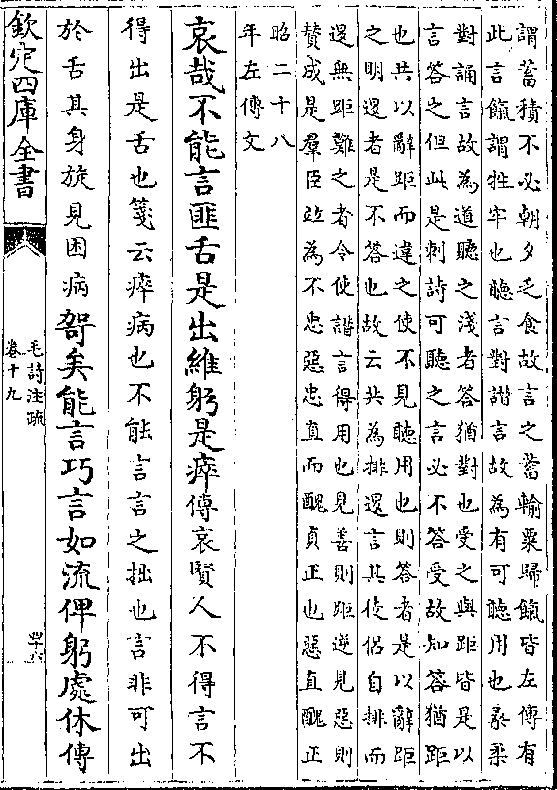 謂蓄積不必朝夕乏食故言之蓄輸粟歸餼皆左傳有
此言餼謂牲牢也聽言對譖言故為有可聽用也桑柔
對誦言故為道聽之淺者答猶對也受之與距皆是以
言答之但此是刺詩可聽之言必不答受故知答猶距
也共以辭距而違之使不見聽用也則答者是以辭距
之明還者是不答也故云共為排還言其伎侶自排而
還無距難之者令使譖言得用也見善則距逆見惡則
賛成是羣臣竝為不忠惡忠直而醜貞正也惡直醜正
昭二十八
年左傳文
哀哉不能言匪舌是出維躬是瘁傳哀賢人不得言不
得出是舌也箋云瘁病也不能言言之拙也言非可出
於舌其身旋見困病哿矣能言巧言如流俾躬處休傳
欽定四庫全書
毛詩注疏
卷十九
四十六